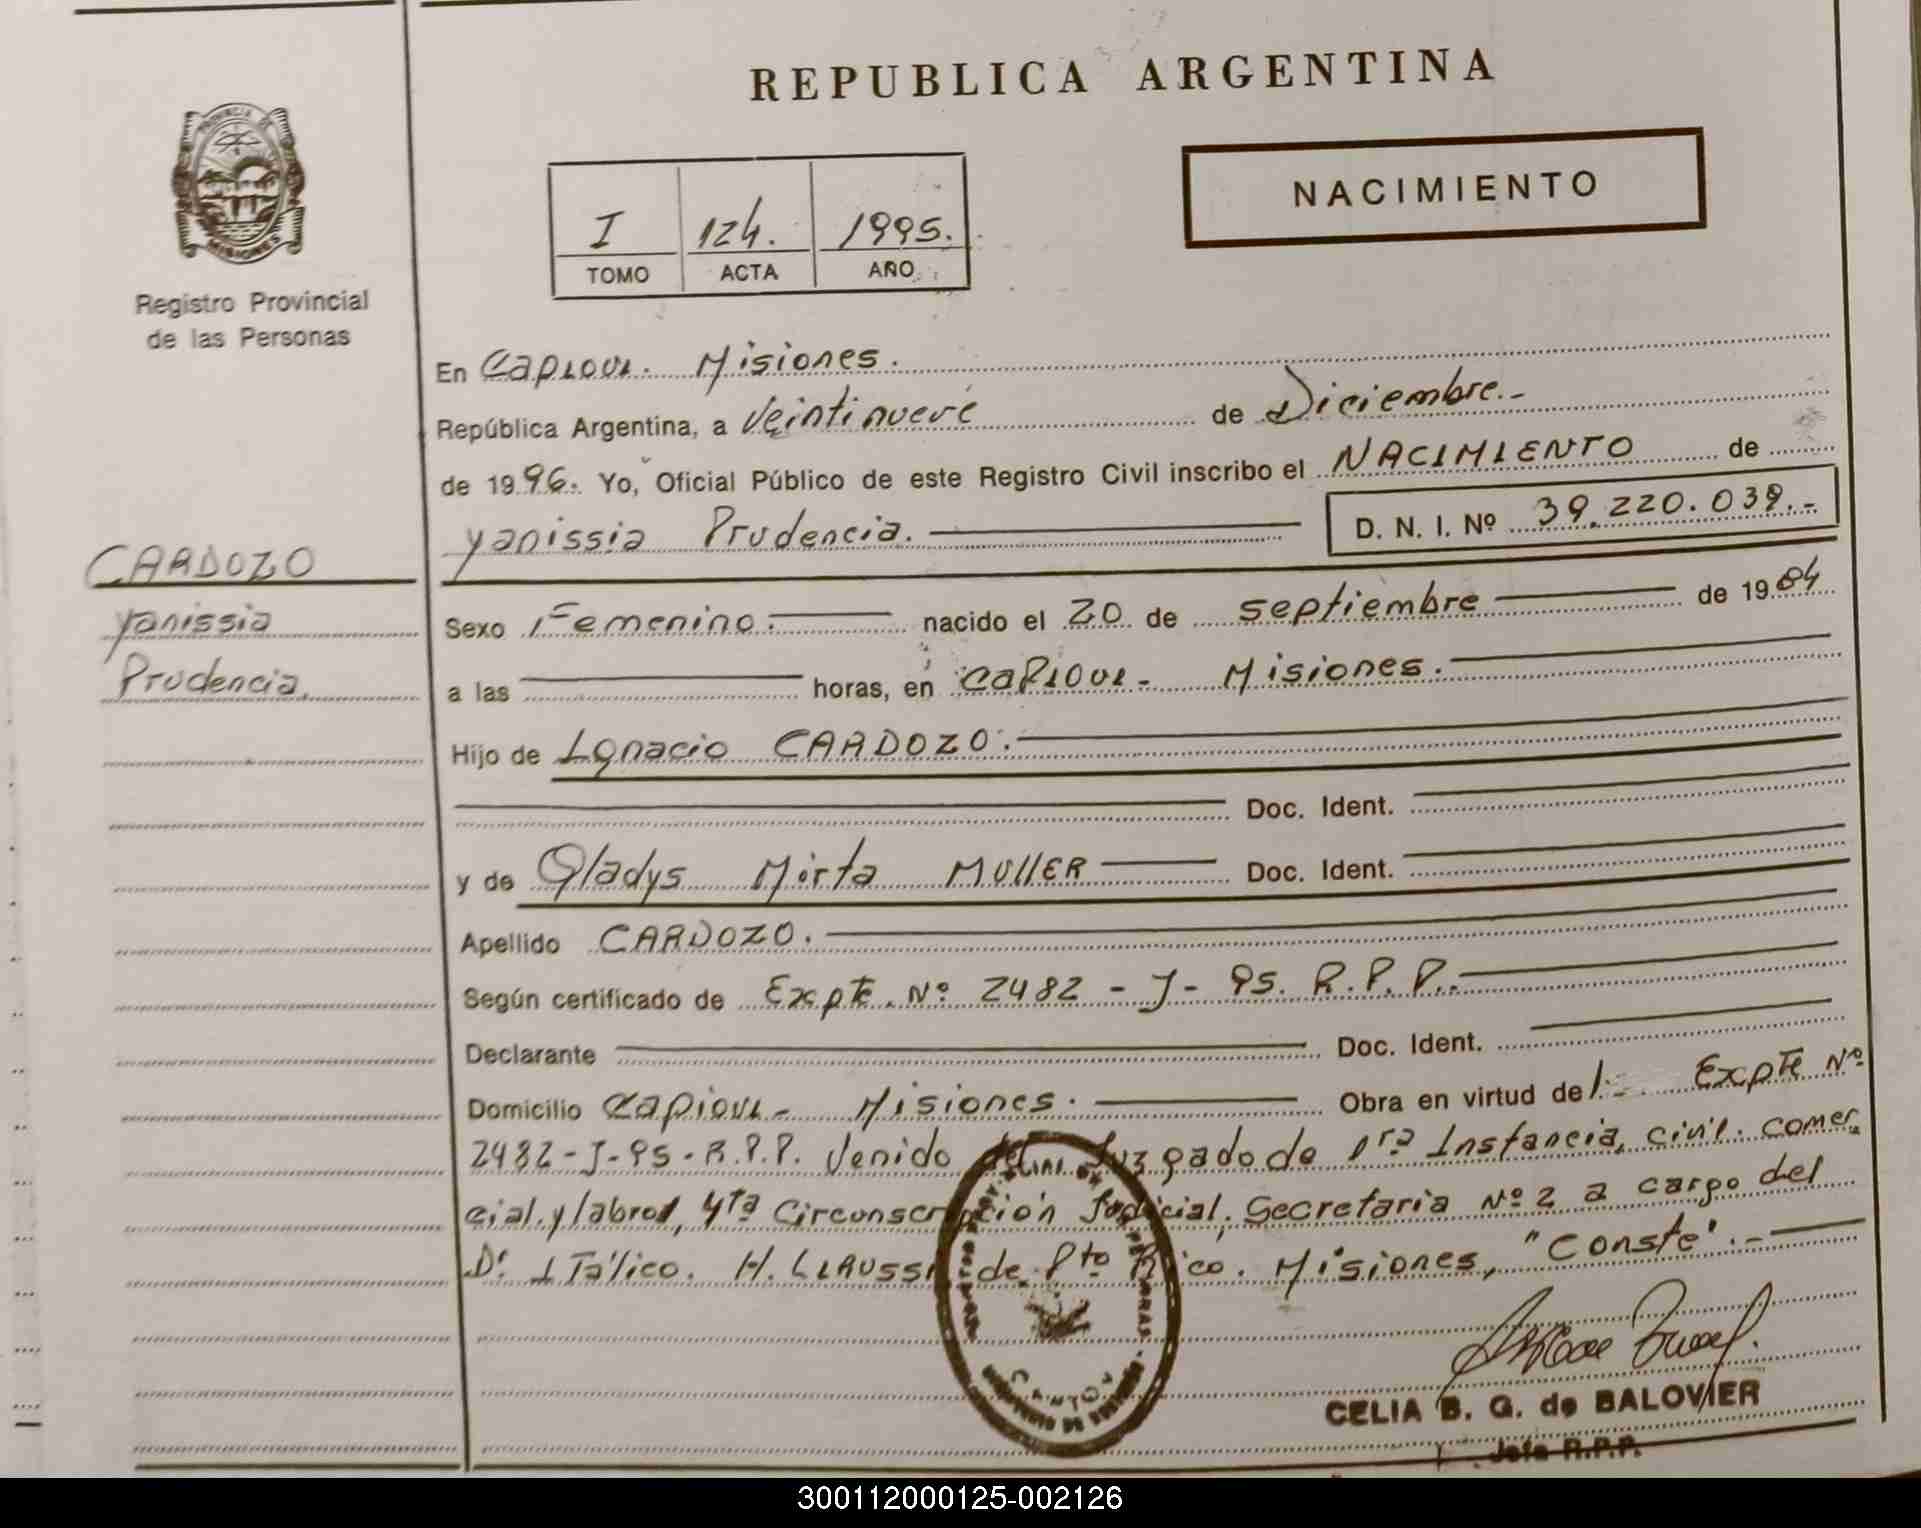 REPUBLICA ARGENTINA
PROVINCIA DE
MISIONES
Registro Provincial
de las Personas
NACIMIENTO
I 124. 1995.
TOMO ACTA AÑO
En Capiovi. Misiones.
República Argentina, a Veintinueve de Diciembre.-
de 1996. Yo, Oficial Público de este Registro Civil inscribo el NACIMIENTO de
Yanissia Prudencia. D. N. I. Nº 39.220.039.-
CARDOZO
Yanissia
Prudencia.
Sexo Femenino. nacido el 20 de septiembre de 1984
a las horas, en Capiovi - Misiones.
Hijo de Ignacio CARDOZO.
Doc. Ident.
y de Gladys Mirta MULLER Doc. Ident.
Apellido CARDOZO.
Según certificado de Expte. Nº 2482 - J - 95. R.P.P.
Declarante Doc. Ident.
Domicilio Capiovi - Misiones. Obra en virtud de Expte Nº
2482-J-95-R.P.P. Venido del Juzgado de 1ra Instancia, civil. comer
cial. y labroal, 4ta Circonscripción Judicial, Secretaria Nº 2 a cargo del
Dr. Itálico. H. de Pto Rico. Misiones, "Conste".-
CELIA B. G. de BALOVIER
Jefe R.P.P.
300112000125-002126